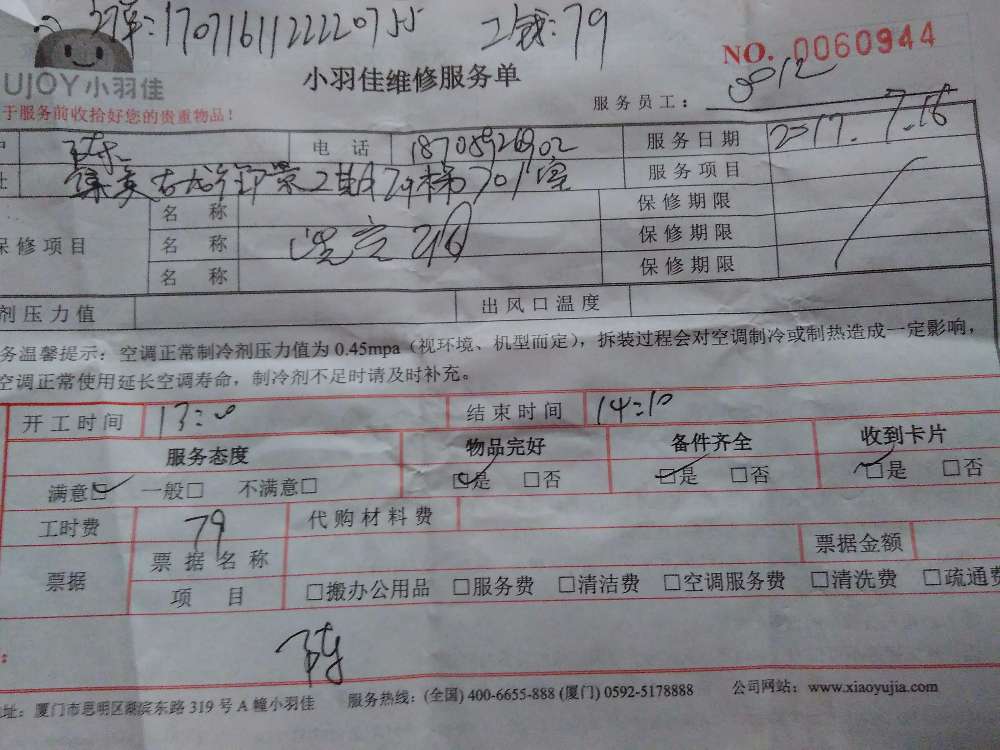 订单:1707161122220755 工钱:79
NO. 0060944
UJOY小羽佳
小羽佳维修服务单
于服务前收拾好您的贵重物品!
服务员工:8012
陈 电 话 服务日期 2017.7.16
2期 701室 服务项目
名 称 保修期限
保修项目 名 称 保修期限
名 称 保修期限
剂压力值 出风口温度
务温馨提示:空调正常制冷剂压力值为 0.45mpa(视环境、机型而定),拆装过程会对空调制冷或制热造成一定影响,
空调正常使用延长空调寿命,制冷剂不足时请及时补充。
开工时间 结束时间 14:10
服务态度 物品完好 备件齐全 收到卡片
满意□ 一般□ 不满意□ □是 □否 □是 □否 □是 □否
工时费 79 代购材料费
票据 票据名称 票据金额
项 目 □搬办公用品 □服务费 □清洁费 □空调服务费 □清洗费 □疏通费
陈
地址:厦门市思明区湖滨东路 319 号 A 幢小羽佳 服务热线:(全国) 400-6655-888 (厦门) 0592-5178888 公司网站:www.xiaoyujia.com